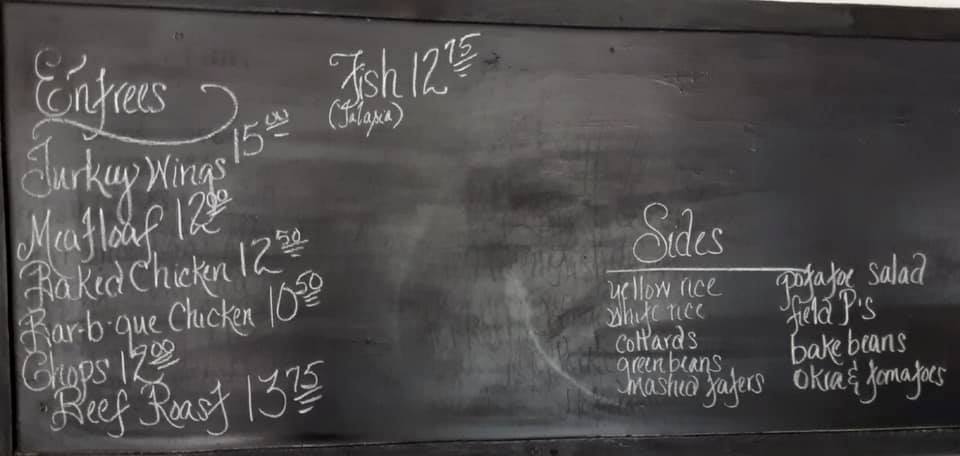 Entrees
Turkey Wings 15.00
Meatloaf 12.00
Baked Chicken 12.50
Bar-b-que Chicken 10.50
Chops 12.00
Beef Roast 13.75
Fish 12.75
(Talapia)
Sides
yellow rice
white rice
collards
green beans
mashed taters
potatoe salad
field P's
bake beans
okra & tomatoes